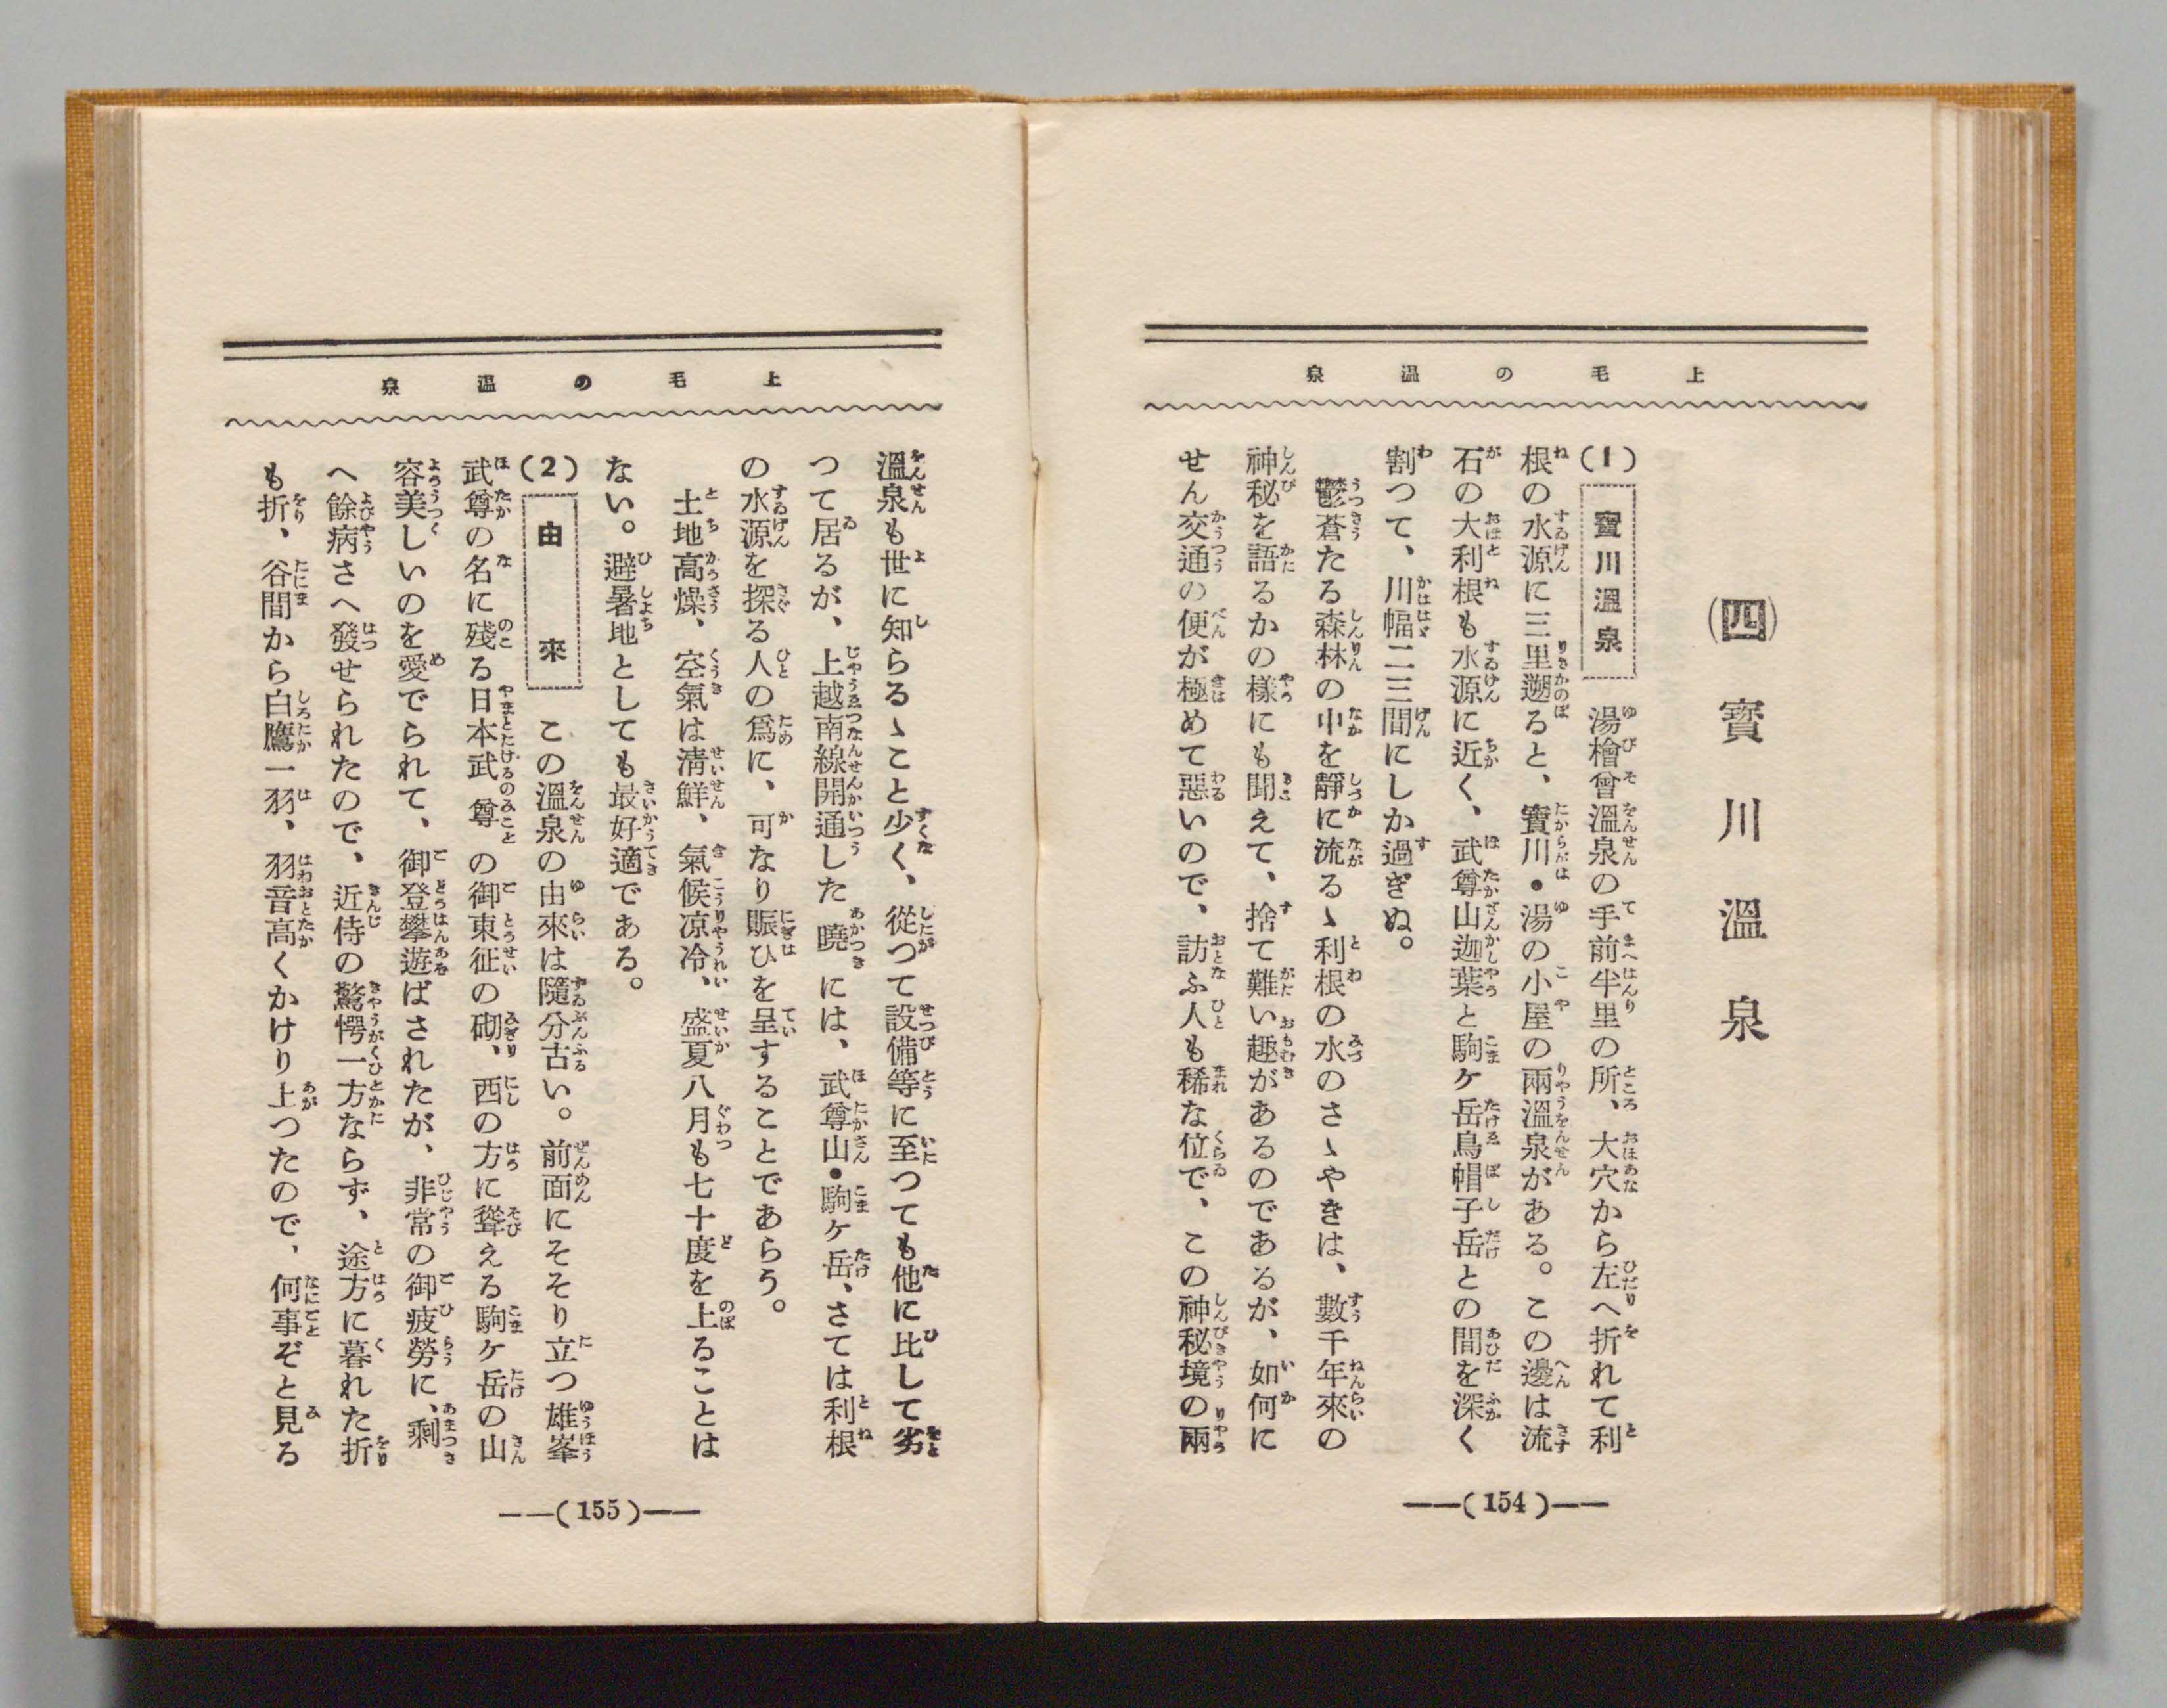 上毛の溫泉
(四) 寳川溫泉
(1) 寳川溫泉 湯檜曾溫泉の手前半里の所、大穴から左へ折れて利
根の水源に三里遡ると、寳川・湯の小屋の兩溫泉がある。この邊は流
石の大利根も水源に近く、武尊山迦葉と駒ケ岳鳥帽子岳との間を深く
割つて、川幅二三間にしか過ぎぬ。
鬱蒼たる森林の中を靜に流るゝ利根の水のさゝやきは、數千年來の
神秘を語るかの樣にも聞えて、捨て難い趣があるのであるが、如何に
せん交通の便が極めて惡いので、訪ふ人も稀な位で、この神秘境の兩
——(154)——
上毛の溫泉
溫泉も世に知らるゝこと少く、從つて設備等に至つても他に比して劣
つて居るが、上越南線開通した曉には、武尊山・駒ケ岳、さては利根
の水源を探る人の爲に、可なり賑ひを呈することであらう。
土地高燥、空氣は淸鮮、氣候凉冷、盛夏八月も七十度を上ることは
ない。避暑地としても最好適である。
(2) 由來 この溫泉の由來は隨分古い。前面にそそり立つ雄峯
武尊の名に殘る日本武尊の御東征の砌、西の方に聳える駒ケ岳の山
容美しいのを愛でられて、御登攀遊ばされたが、非常の御疲勞に、剩
へ餘病さへ發せられたので、近侍の驚愕一方ならず、途方に暮れた折
も折、谷間から白鷹一羽、羽音高くかけり上つたので、何事ぞと見る
——(155)——